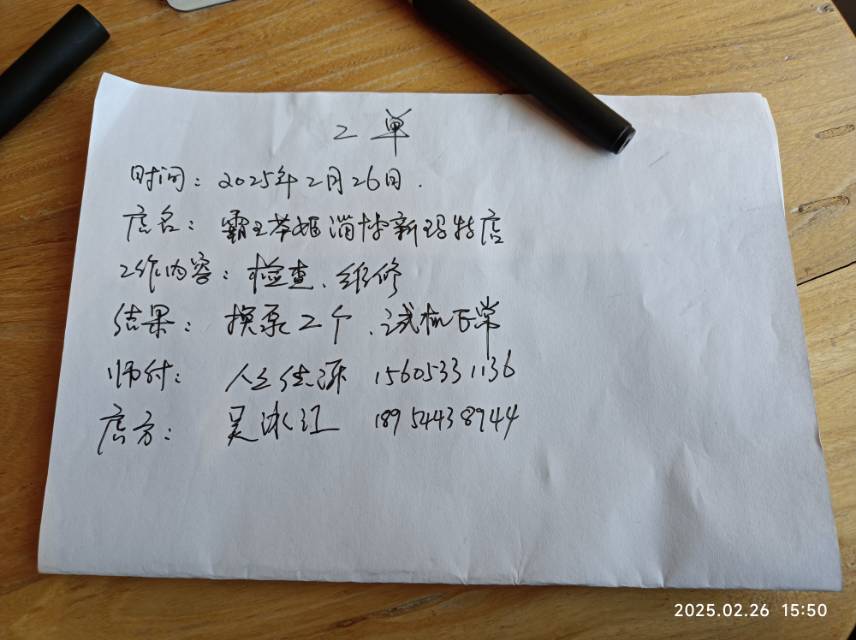 工单
时间：2025年2月26日.
店名：霸王茶姬淄博新玛特店
工作内容：检查、维修
结果：换泵2个、试机正常
师付： 15605331136
店方：吴冰江 18954438944
2025.02.26 15:50